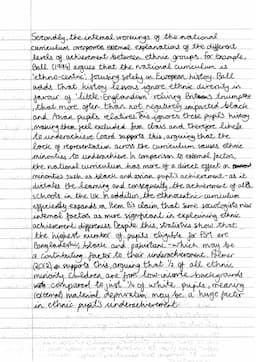 Secondly, the internal workings of the national
curriculum overcome external explanations of the different
levels of achievement between ethnic groups. For example,
Ball (1994) argues that the national curriculum is
'ethno-centric', focusing solely on European history. Ball
adds that history lessons ignore ethnic diversity in
favour of 'little Englandism' reliving Britain's triumphs
that more often than not negatively impacted black
and Asian pupils relatives. This ignores these pupils history
making them feel excluded from class and therefore likely
to underachieve. Coard supports this, arguing that the
lack of representation across the curriculum causes ethnic
minorities to underachieve. In comparison to external factors,
the national curriculum has more of a direct effect on
minorities such as black and asian pupil's achievement - as it
dictates the learning and consequently the achievement of all
schools in the UK. In addition, the ethnocentric curriculum
especially expands on Ben claim, that some sociologists
internal factors as more significant in explaining ethnic
achievement differences. Despite this, statistics show that
the highest number of pupils eligible for FSM are
Bangladeshi, black and pakistani - which may be
a contributing factor to their underachievement. Palmer
(2012) supports this, arguing that ½ of all ethnic
minority children are from low-income backgrounds
compared to just ¼ of white pupils, meaning
(external) material deprivation may be a huge factor
in ethnic pupil's underachievement